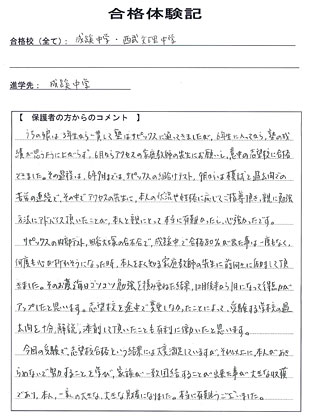 合格体験記
合格校（全て）： 成蹊中学・西武文理中学
進学先： 成蹊中学
【 保護者の方からのコメント 】
うちの娘は3年生から一貫して塾はサピックスに通ってきましたが、6年生に入ってから、塾の成
績が思うようにとれず、6月からアクセスの家庭教師の先生にお願いし、意中の志望校に合格
できました。その過程は、6年前半までは、サピックスの
苦労の連続で、その中でアクセスの先生に、本人の状況や性格に応じてご指導頂き、親に勉強
方法にアドバイス頂いたことが、本人と親にとって、本当に有難かったし、心強かったです。
サピックスの 、四谷大塚の合不合で、成蹊中で合格80%が出た事は一度もなく、
何度も心が折れそうになった時、本人をよく知る家庭教師の先生に前向きに励まして頂
きました。その お蔭でコツコツ勉強を積み重ねた結果、12月頃から1月になって得点力が
アップしたと思います。志望校を途中で変更しなかったことによって、受験する学校の過
去問を十分、解説、添削して頂いたことも有利に働いたと思います。
今回の受験で、志望校合格という結果により大変満足していますが、それ以上に、本人があき
らめないで努力することを学び、家族が一致団結することが出来た事が大きな収穫
であり、本人、一家の大きな、大きな財産になりました。本当に有難うございました。